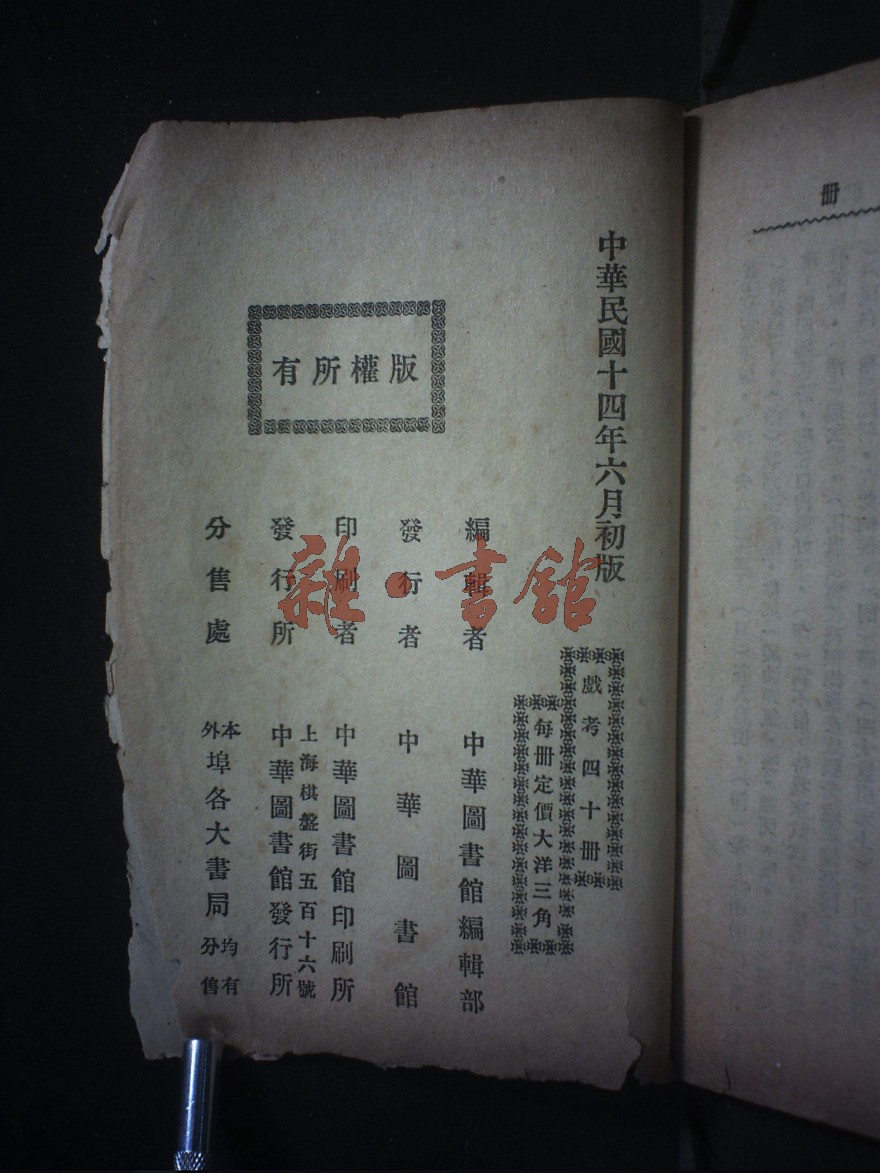 中華民國十四年六月初版
戲考四十册
每册定價大洋三角
版權所有
編輯者 中華圖書館編輯部
發行者 中華圖書館
印刷者 中華圖書館印刷所
上海棋盤街五百十六號
發行所 中華圖書館發行所
分售處 本外埠各大書局均有分售
雜·書館
册